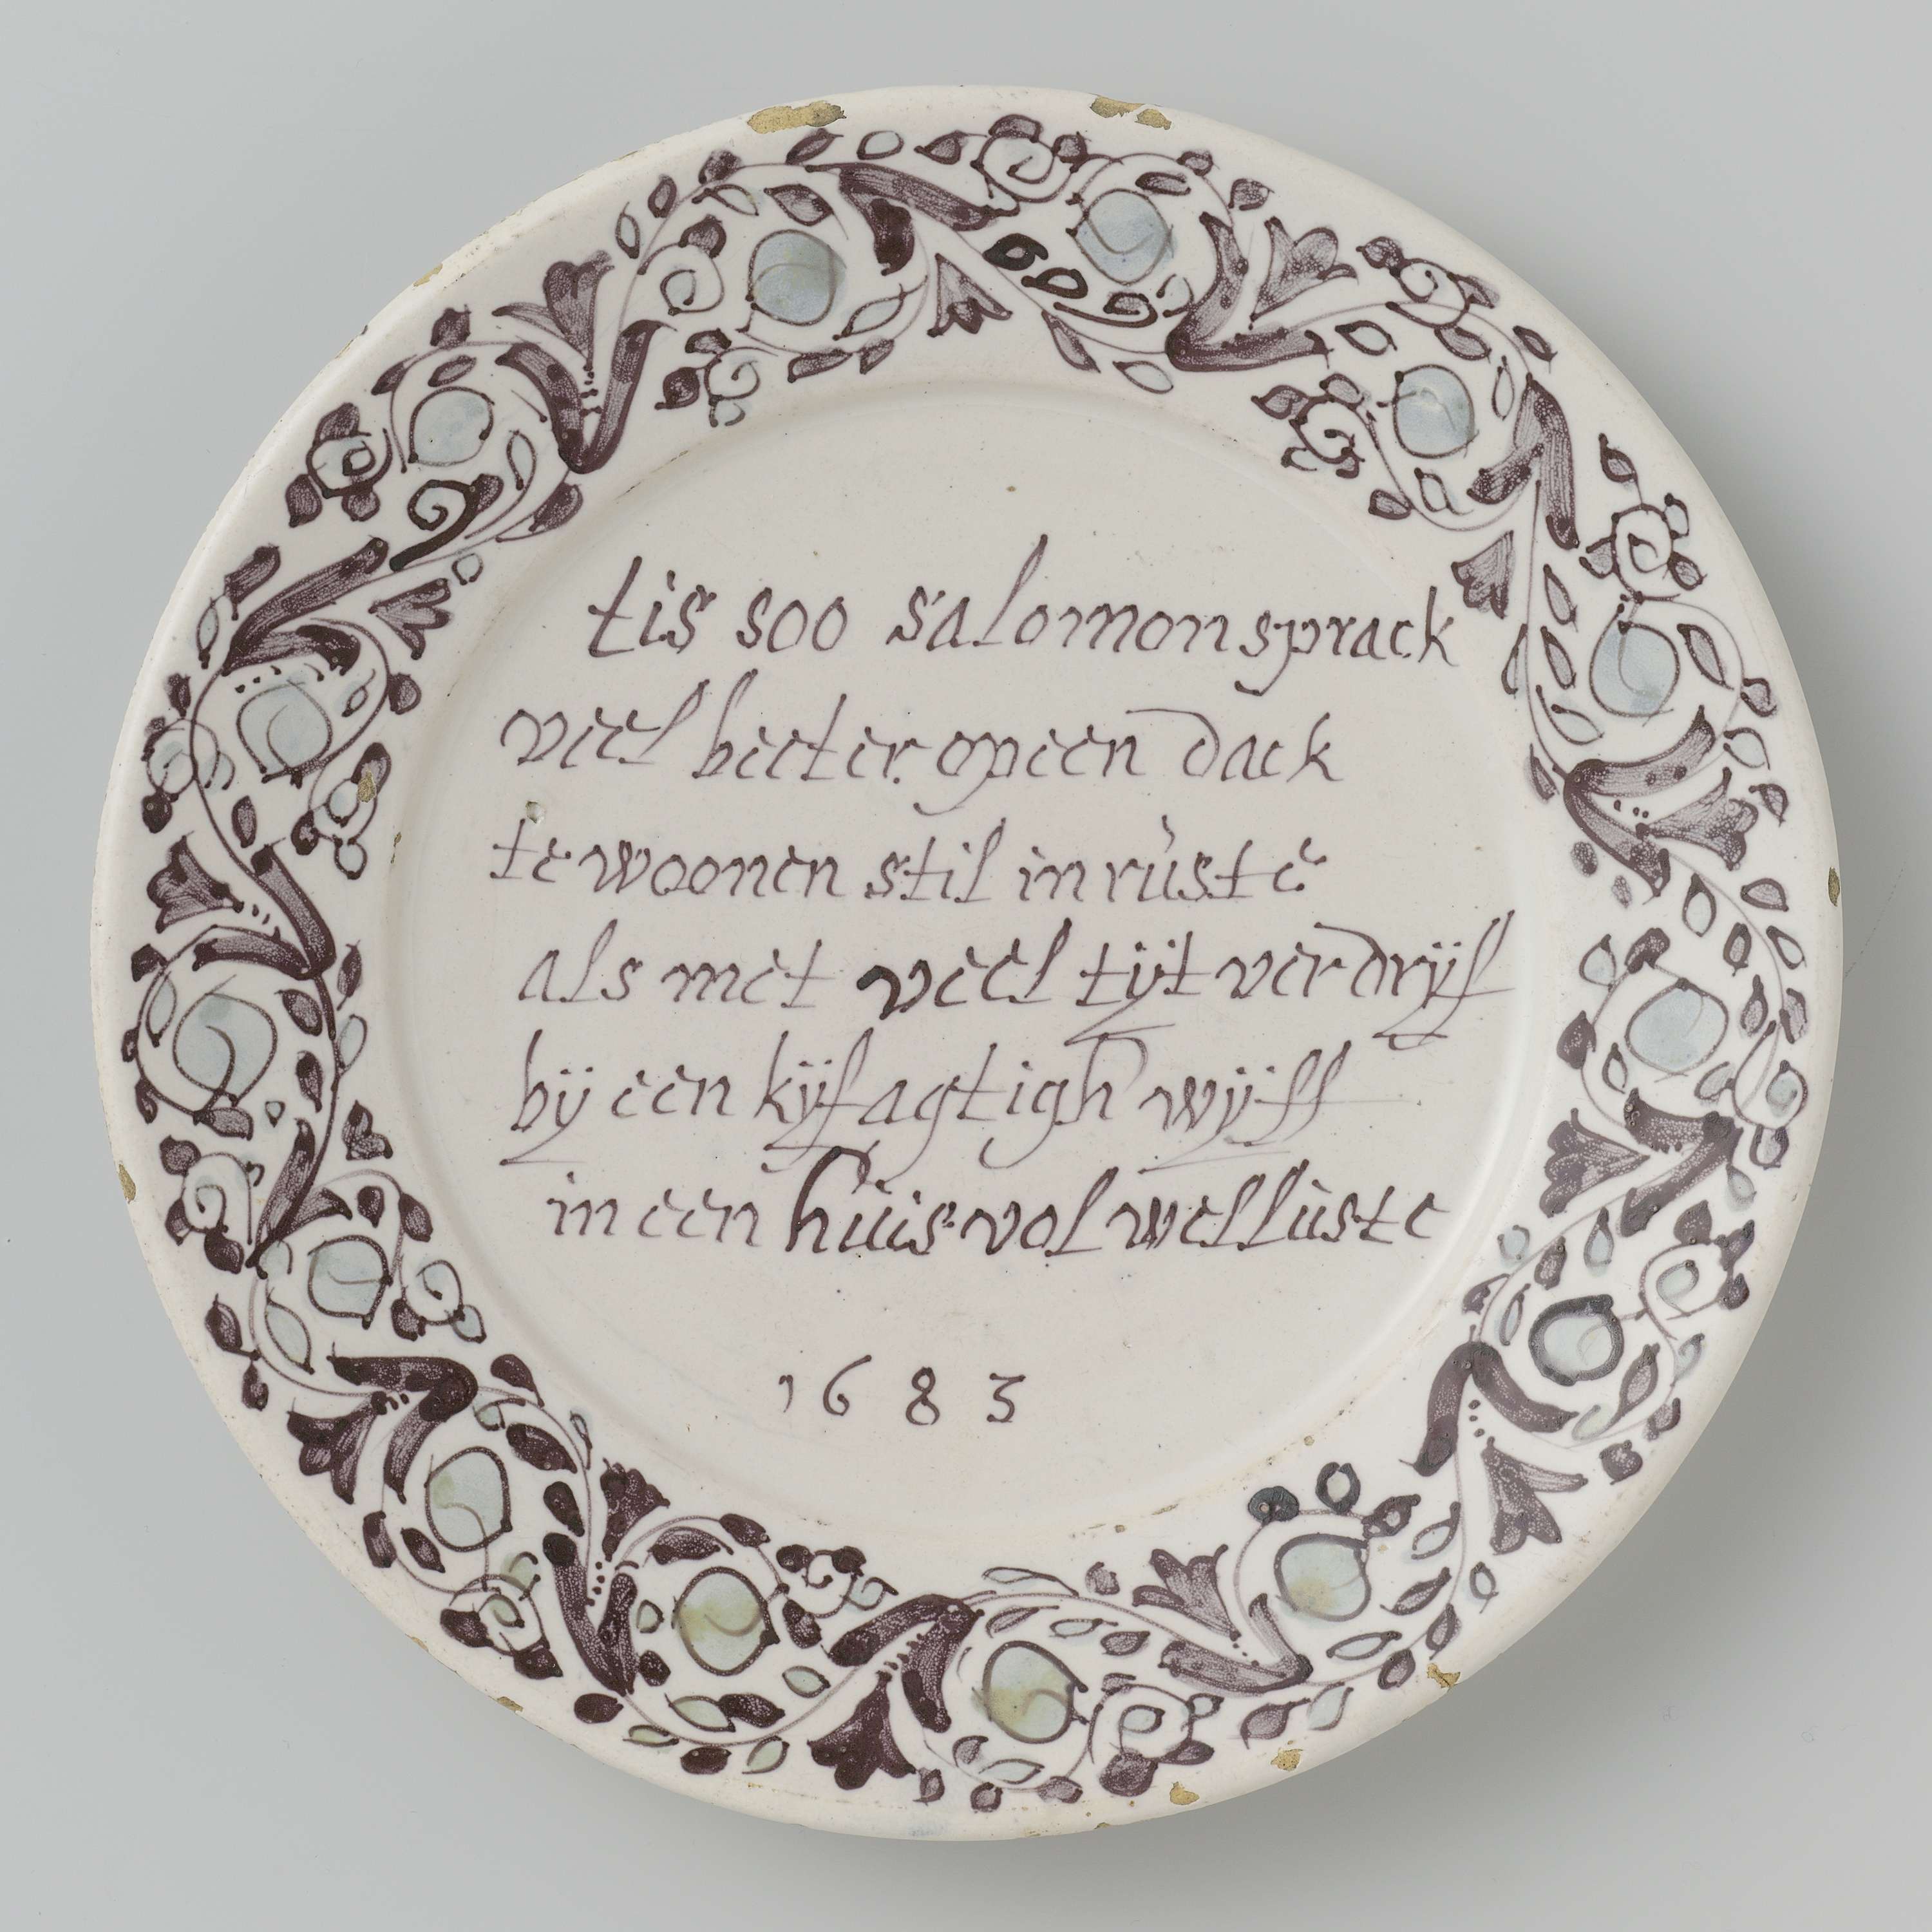 tis soo salomon sprack
veel beeter op een dack
te woonen stil in rùste
als met veel tÿt verdrÿf
bÿ een kÿfagtigh wÿff
in een huis vol wellùste
1683